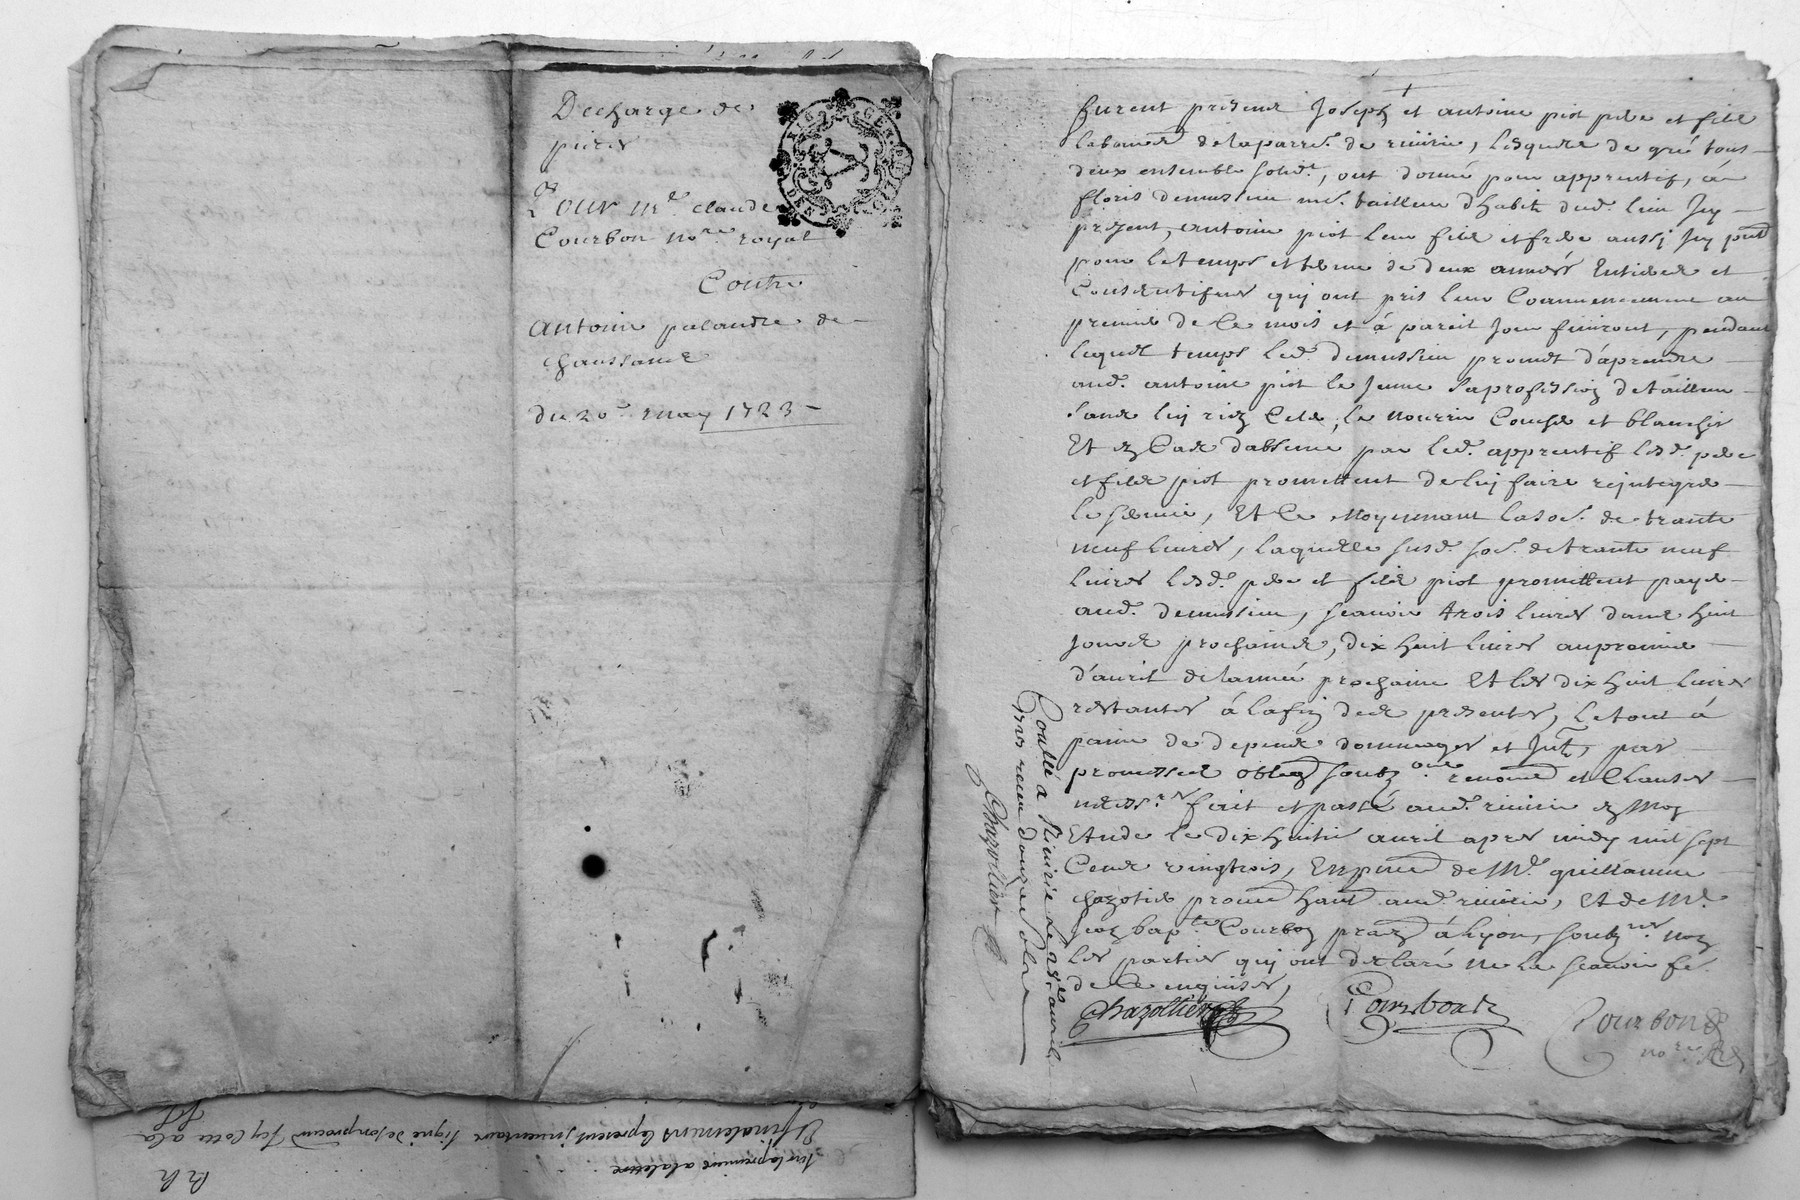 Descharge de
pieces
Pour Me. claude
Courbon nore. royal
Contre
Antoine palandre de
chaussanne
du 20e. may 1723
furent presens Joseph et antoine piot pere et fils
laboureurs de laparre. de riuirie, lesquels de gré tous
deux ensemble solid., ont donné pour apprentif, a
floris demussieu me. tailleur d'habits dud. lieu Jcy
present, antoine piot leur fils et frere aussy Jcy pnt
pour le temps et terme de deux années Entieres et
Consecutifues quy ont pris leur Commencement au
premier de Ce mois et á pareil Jour finiront, pendant
lequel temps led. demussieu promet d'aprendre
aud. antoine piot le Jeune saprofession detailleur
sans luy rien Celer, le nourrir Coucher et blanchir
Et en Cas d'absence par led. apprentif lesd. pere
et fils piot promettent deluy faire rejntegrer
le seruice, Et Ce Moyennant lasoe. de trante
neuf liures, laquelle susd. soe. detrante neuf
liures lesd. pere et fils piot promettent payer
aud. demussieu, scauoir trois liures dans huit
jours prochains, dix huit liures aupremier
d'auril delannée prochaine Et les dix huit liures
restantes á lafin des presentes, letout á
peine de depens dommages et Jnts, par
promesses oblig soubz renon et Clauses
necessres. fait et passé aud. riuirie en Mon
Etude le dix huitie auril apres midy mil sept
Cens vingtrois, En pnce de Me. guillaume
chazotier aud. riuirie, Et de Me.
Jean bapte. Courbon á lyon, soubznes. non
les parties quy ont declaré ne le scauoir fe.
de Ce enquises,
Chazottier
Courbon
Courbon
nore. Rl
Contllé a Riuirie le auril
1723 receu douze sols
Chazottier
Et finalement le present jnuentaire signé de son procur Jcy Cotté a la